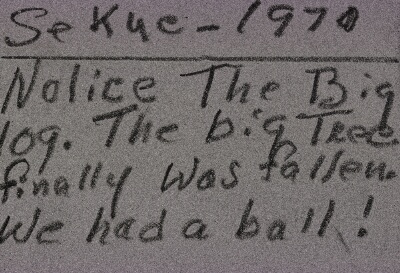 Se Kue - 1970
Notice The Big
log. The big Tree
finally was fallen.
We had a ball!